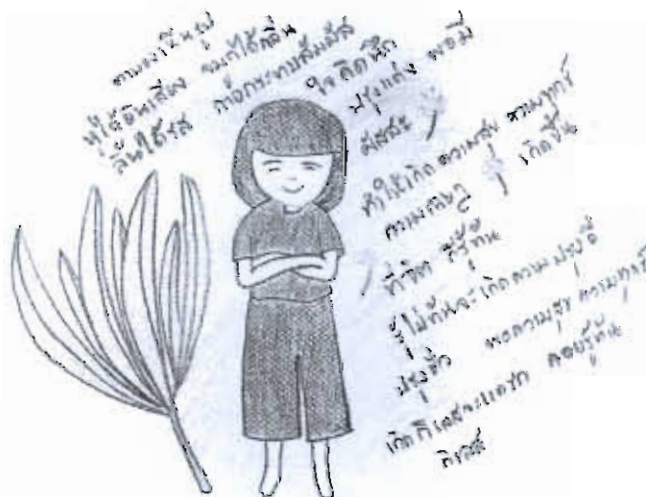 ตามองเห็นรูป
หูได้ยินเสียง จมูกได้กลิ่น
ลิ้นได้รส กายกระทบสัมผัส
ใจคิดนึก
ปรุงแต่ง พอมี
ผัสสะ
ทำให้เกิดความสุข ความทุกข์
ความเฉยๆ เกิดขึ้น
ที่จิต
รู้ไม่ทันจะเกิดความปรุงดี
ปรุงชั่ว พอความสุข ความทุกข์
เกิดกิเลสจะแทรก คอยรู้ทัน